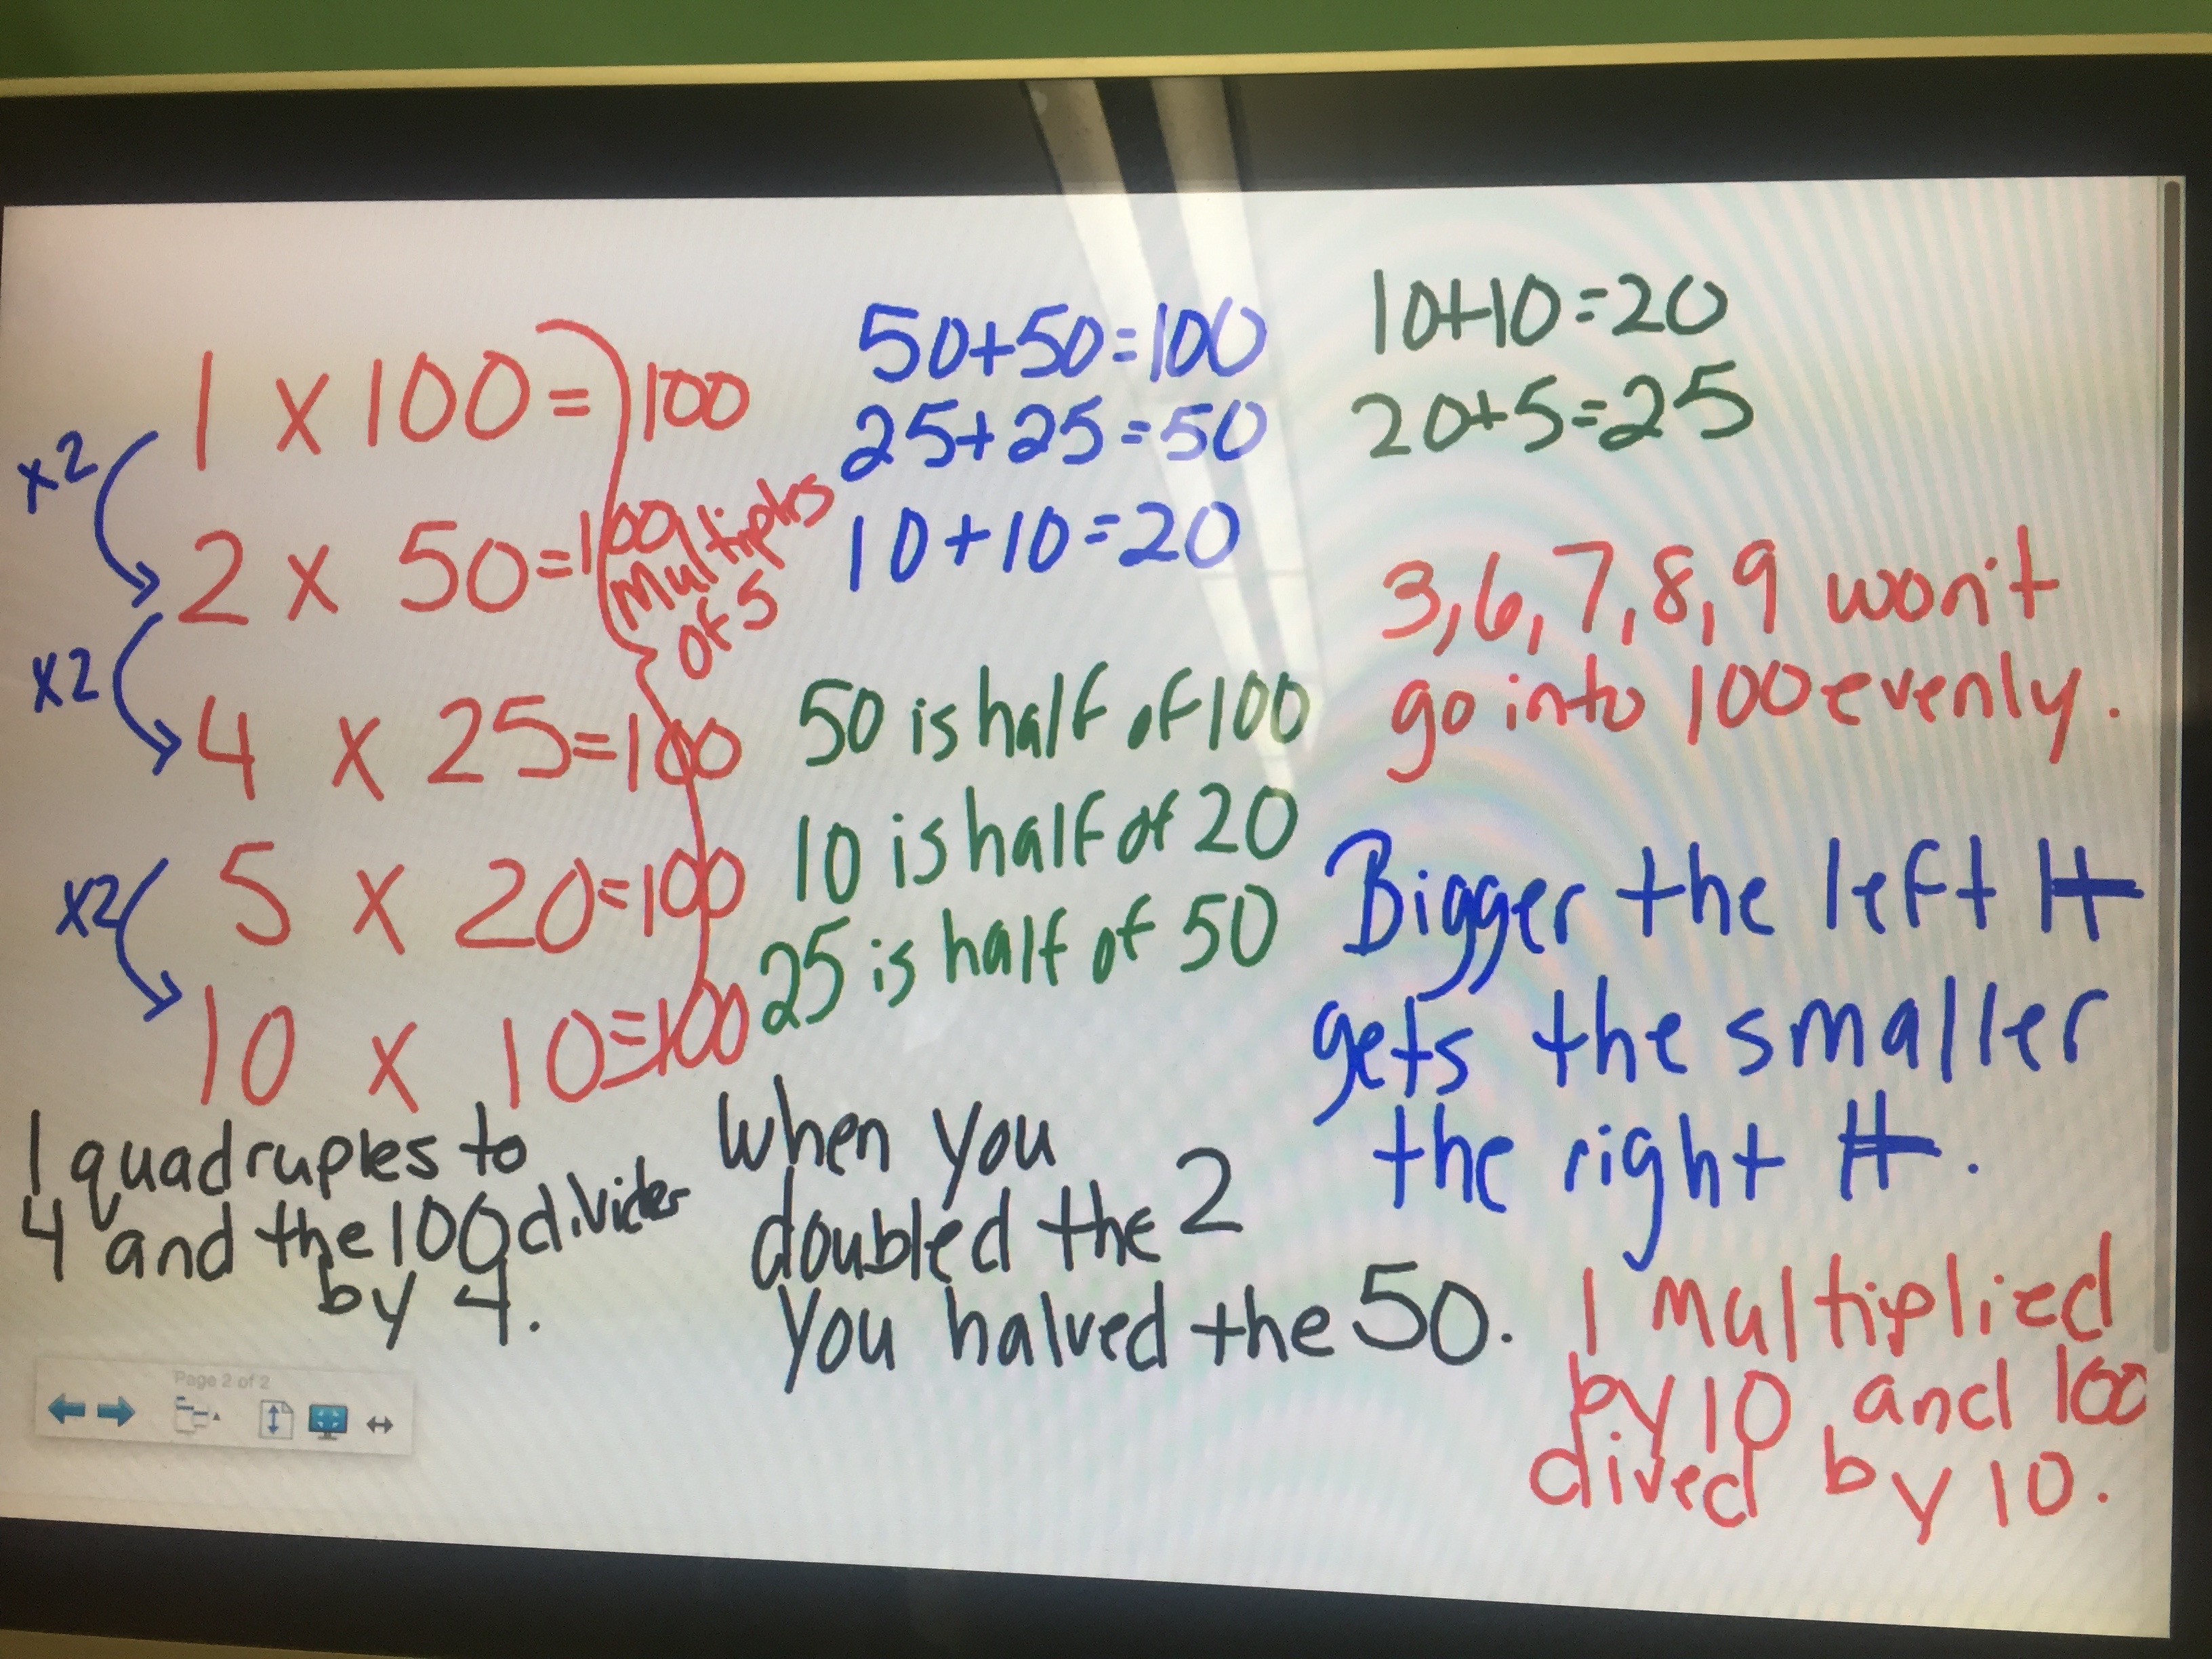 1 x 100 = 100
x2
2 x 50 = 100
x2
4 x 25 = 100
5 x 20 = 100
x2
10 x 10 = 100
Multiples
of 5
1 quadruples to
4 and the 100
by 4.
50+50=100
25+25=50
10+10=20
50 is half of 100
10 is half of 20
25 is half of 50
when you
doubled the 2
you halved the 50.
10+10=20
20+5=25
3,6,7,8,9 won't
go into 100 evenly.
Bigger the left #
gets the smaller
the right #.
1 multiplied
by 10 and 100
dived by 10.
Page 2 of 2